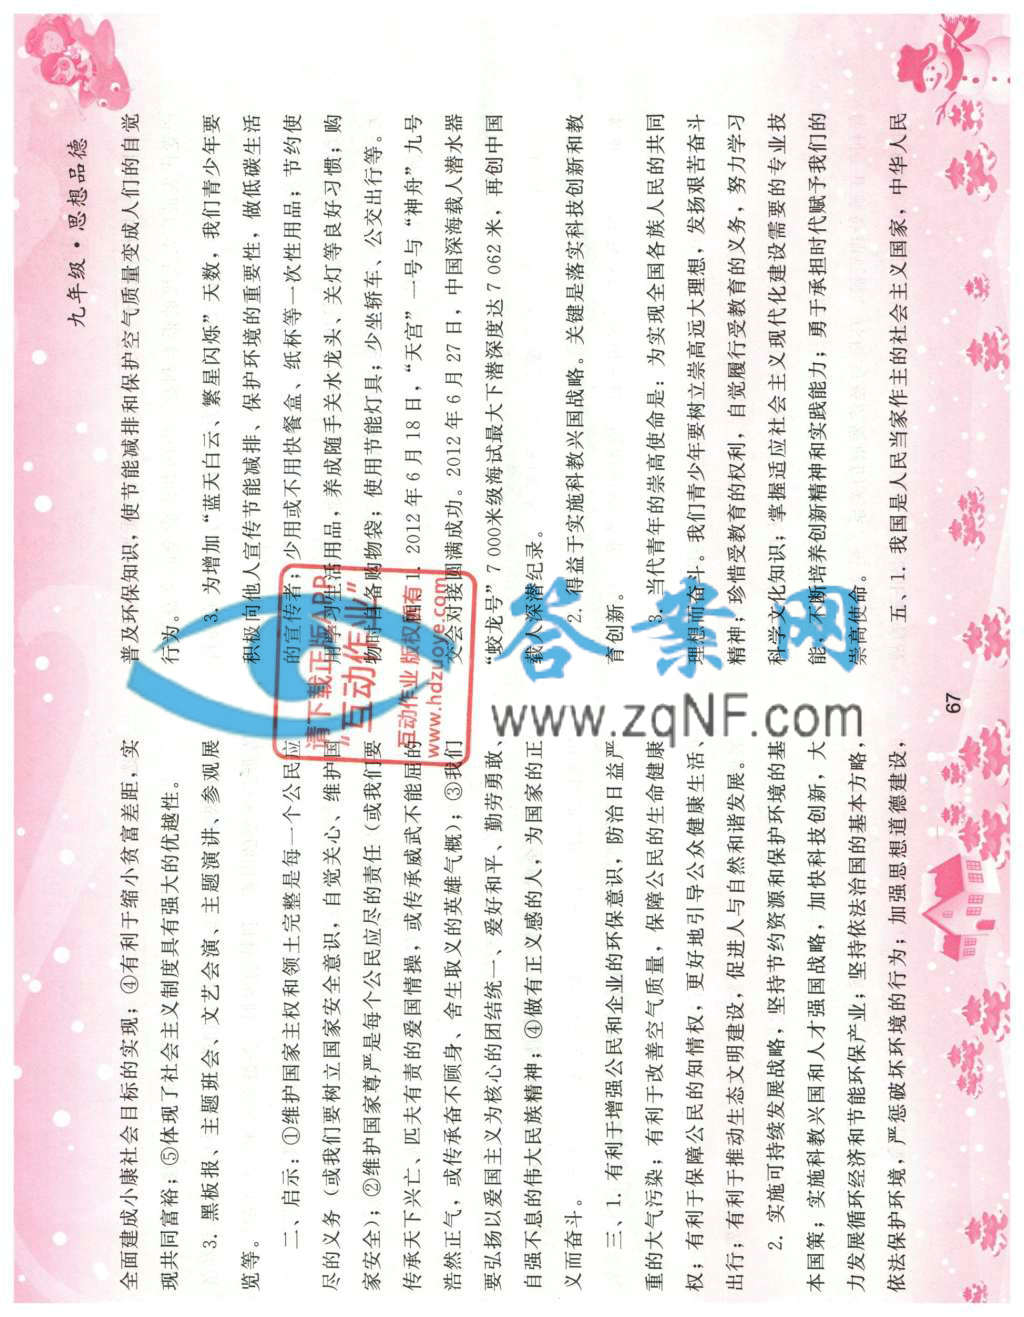 九年级·思想品德
全面建成小康社会目标的实现；④有利于缩小贫富差距，实
现共同富裕；⑤体现了社会主义制度具有强大的优越性。
3. 黑板报、主题班会、文艺会演、主题演讲、参观展
览等。
二、启示：①维护国家主权和领土完整是每一个公民应
尽的义务（或我们要树立国家安全意识，自觉关心、维护国
家安全）；②维护国家尊严是每个公民应尽的责任（或我们要
传承天下兴亡、匹夫有责的爱国情操，或传承威武不能屈的
浩然正气，或传承奋不顾身、舍生取义的英雄气概）；③我们
要弘扬以爱国主义为核心的团结统一、爱好和平、勤劳勇敢、
自强不息的伟大民族精神；④做有正义感的人，为国家的正
义而奋斗。
三、1. 有利于增强公民和企业的环保意识，防治日益严
重的大气污染；有利于改善空气质量，保障公民的生命健康
权；有利于保障公民的知情权，更好地引导公众健康生活、
出行；有利于推动生态文明建设，促进人与自然和谐发展。
2. 实施可持续发展战略，坚持节约资源和保护环境的基
本国策；实施科教兴国和人才强国战略，加快科技创新，大
力发展循环经济和节能环保产业；坚持依法治国的基本方略，
依法保护环境，严惩破坏环境的行为；加强思想道德建设，
普及环保知识，使节能减排和保护空气质量变成人们的自觉
行为。
3. 为增加“蓝天白云、繁星闪烁”天数，我们青少年要
积极向他人宣传节能减排、保护环境的重要性，做低碳生活
的宣传者；少用或不用快餐盒、纸杯等一次性用品；节约使
用学习生活用品，养成随手关水龙头、关灯等良好习惯；购
物时自备购物袋；使用节能灯具；少坐轿车、公交出行等。
1. 2012年6月18日，“天宫”一号与“神舟”九号
交会对接圆满成功。2012年6月27日，中国深海载人潜水器
“蛟龙号”7 000米级海试最大下潜深度达7 062米，再创中国
载人深潜纪录。
2. 得益于实施科教兴国战略。关键是落实科技创新和教
育创新。
3. 当代青年的崇高使命是：为实现全国各族人民的共同
理想而奋斗。我们青少年要树立崇高远大理想，发扬艰苦奋斗
精神；珍惜受教育的权利，自觉履行受教育的义务，努力学习
科学文化知识；掌握适应社会主义现代化建设需要的专业技
能，不断培养创新精神和实践能力；勇于承担时代赋予我们的
崇高使命。
五、1. 我国是人民当家作主的社会主义国家，中华人民
67
请下载正版APP
“互动作业”
互动作业 版权所有
www.hdzuoye.com
答案网
www.zqNF.com